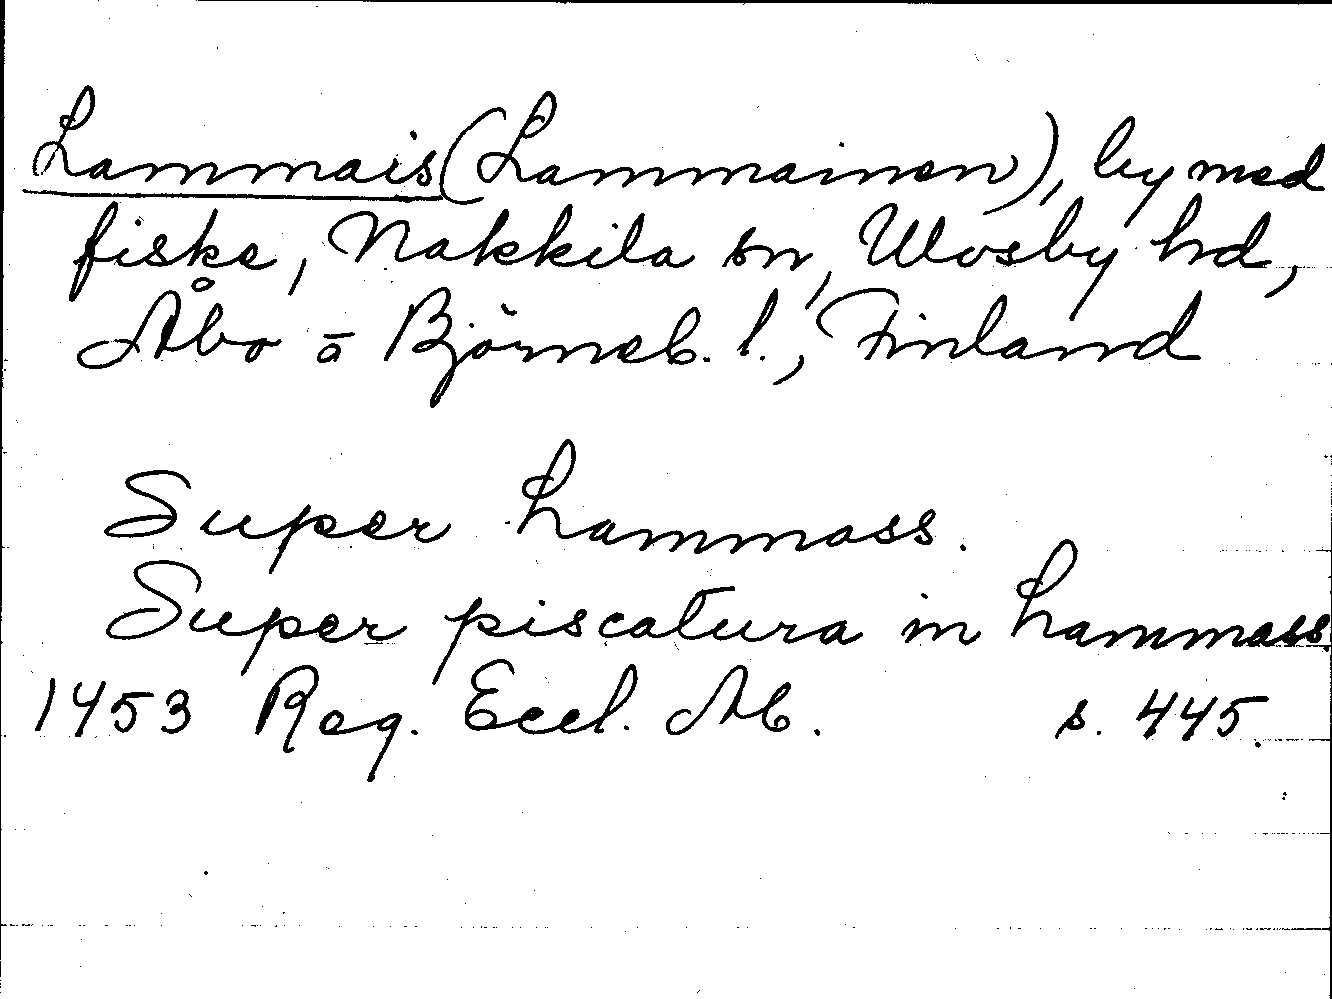 Lammais (Lammainen), by med
fiske, Nakkila sn, Ulvsby hd,
Åbo o Björneb. l., Finland
Super Lammass.
Super piscatura in Lammass.
1453 Reg. Eccl. Ab. s. 445.